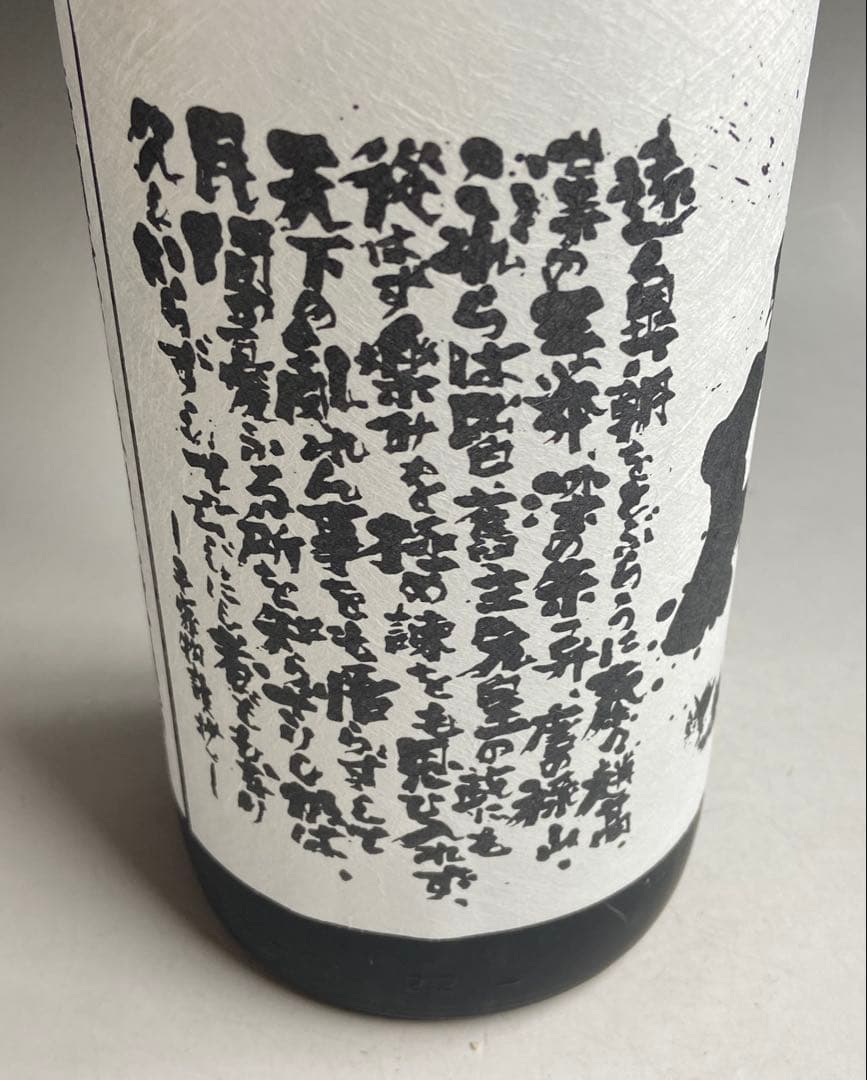 遠く異朝をとぶらうに秦の趙高、
漢の王莽、梁の朱异、唐の禄山、
これらは皆、舊主先皇の政にも
従はず楽みを極め諫をも思ひ入れず、
天下の乱れん事をも悟らずして
民間の憂ふる所を知らざりしかば、
久しからずして 者ども
―平家物語抄―